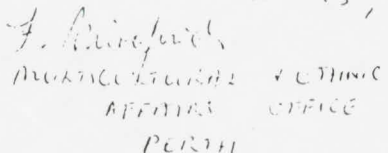 MULTICULTURAL & ETHNIC
AFFAIRS OFFICE
PERTH